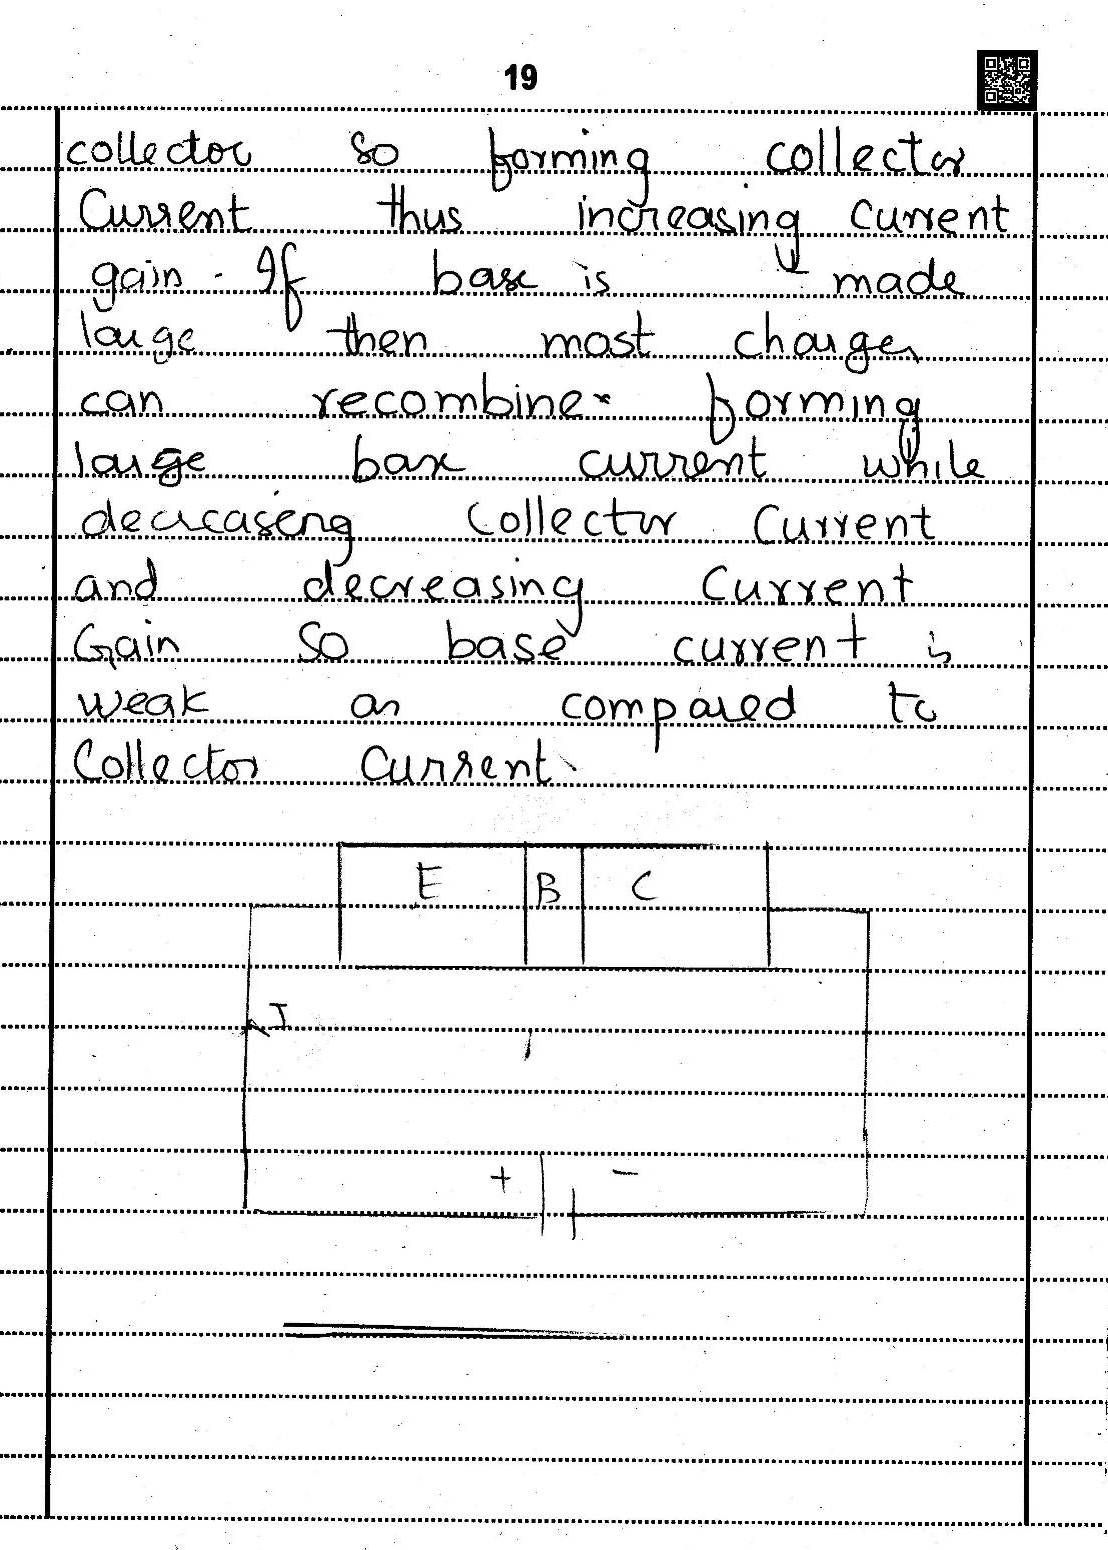 19
collector so forming collector
Current thus increasing current
gain. If base is made
large then most charges
can recombine forming
large base current while
decreaseng Collector Current
and decreasing Current
Gain So base current is
weak as compared to
Collector Current.
E B C
I
+ -